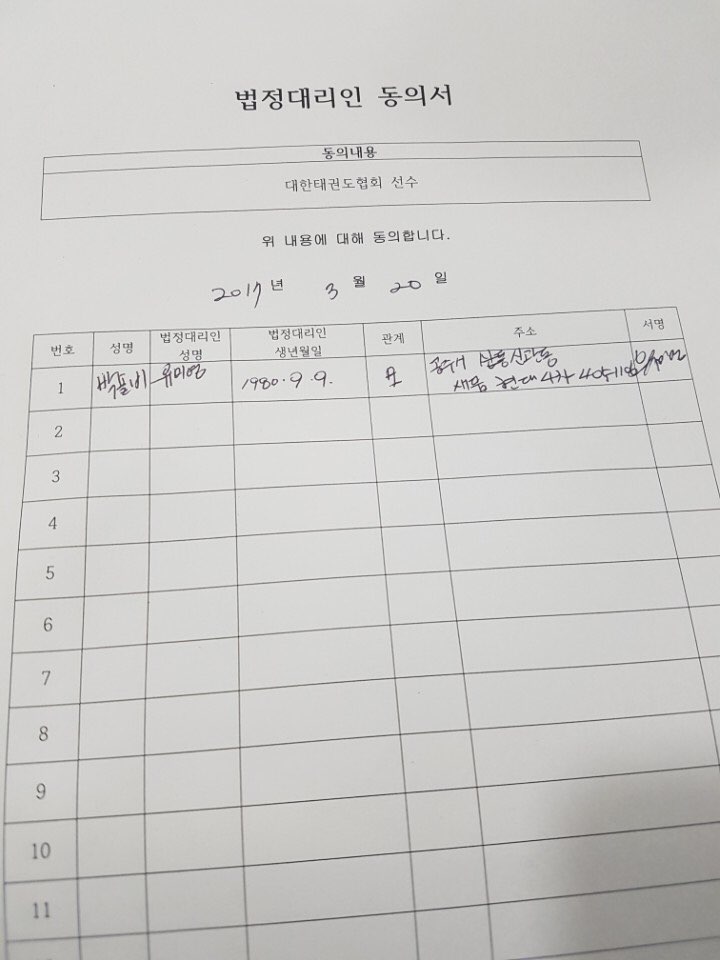 법정대리인 동의서
동의내용
대한태권도협회 선수
위 내용에 대해 동의합니다.
2017년 3월 20일
번호 성명 법정대리인 성명 법정대리인 생년월일 관계 주소 서명
1 백솔비 류미영 1980.9.9. 모
2
3
4
5
6
7
8
9
10
11